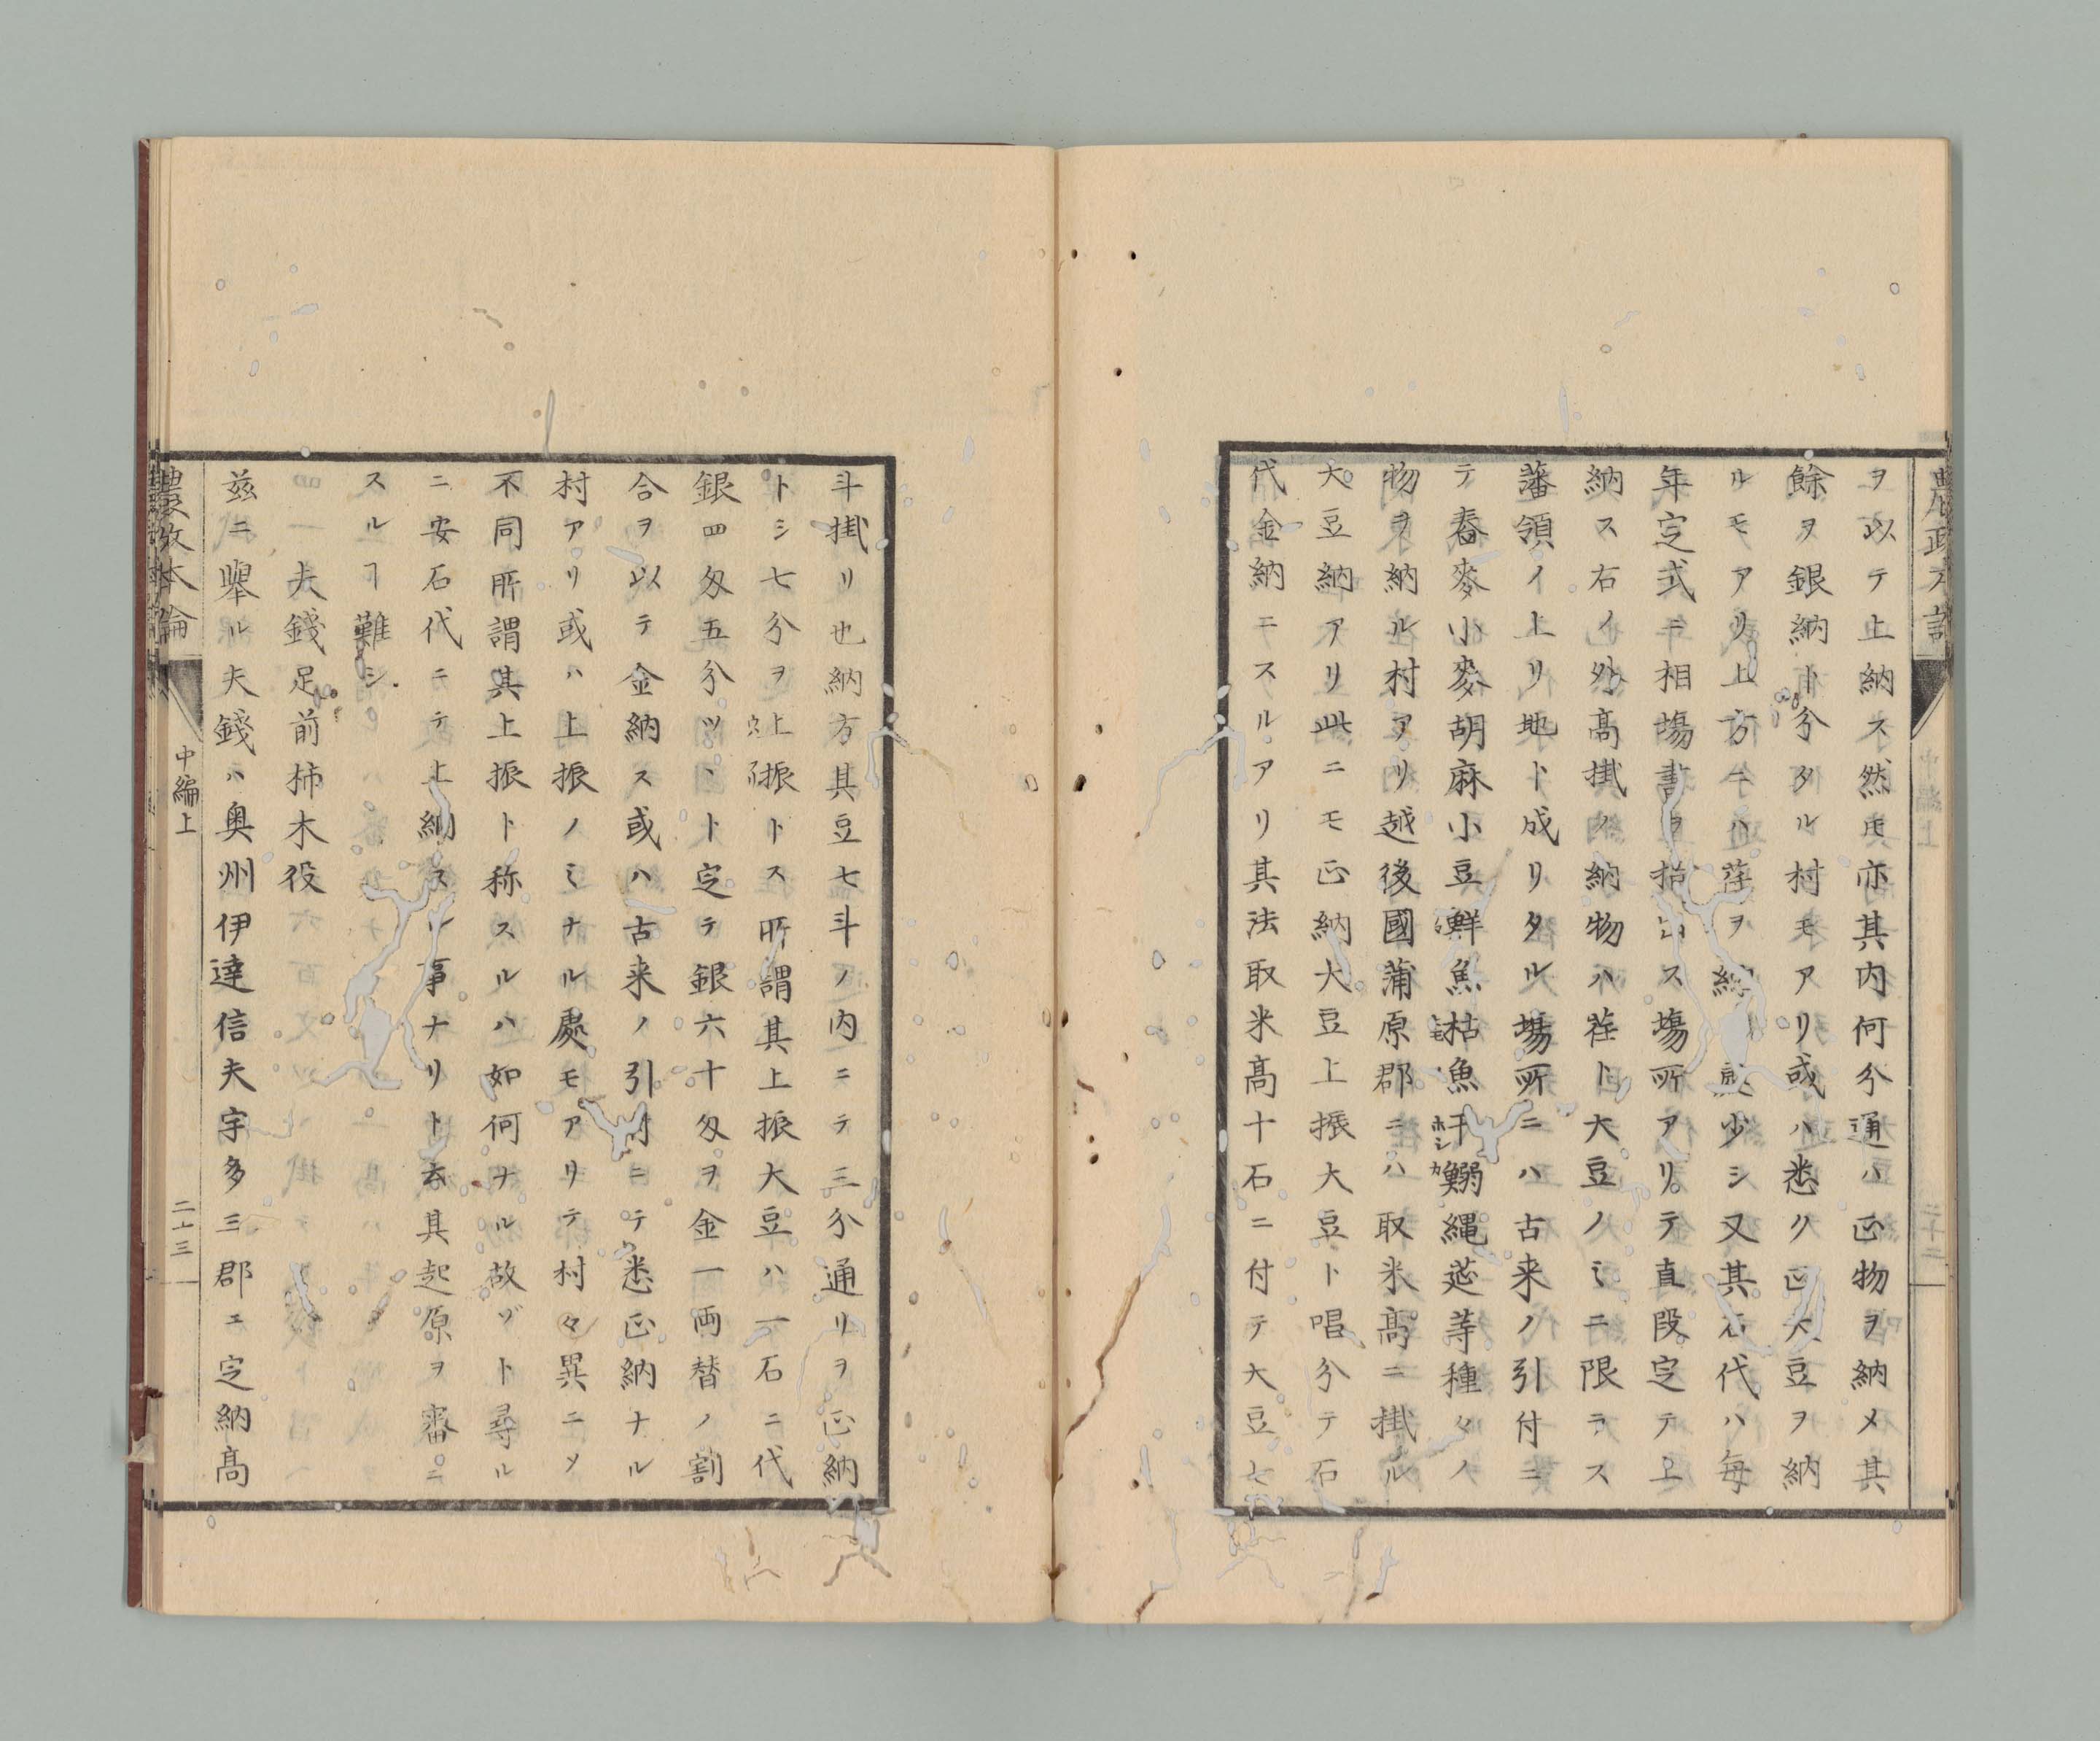 ヲ以テ上納ス然𪜈亦其内何分通ハ正物ヲ納メ其
餘ヲ銀納ト分タル村モアリ或ハ悉ク正大豆ヲ納
ルモアリ上方ニハ荏ヲ納 少シ又其石代ハ毎
年定式ニ相塲書ヲ 出ス塲所アリテ直段定テ上
納ス右ノ外高掛ノ納物ハ荏ト大豆ノミニ限ラス
藩領ノ上リ地ト成リタル塲所ニハ古来ノ引付ニ
テ舂麥小麥胡麻小豆鮮魚枯魚干鰯縄莚等種々ノ
ホシカ
物ヲ納ル村アリ越後國蒲原郡ニハ取米高ニ掛ル
大豆納アリ此ニモ正納大豆上振大豆ト唱分テ石
代金納ニスルアリ其法取米高十石ニ付テ大豆七
中編上
斗掛リ也納方其豆七斗ノ内ニテ三分通リヲ正納
トシ七分ヲ上振トス所謂其上振大豆ハ一石ニ代
銀四匁五分ツヽト定テ銀六十匁ヲ金一両替ノ割
合ヲ以テ金納ス或ハ古来ノ引付ニテ悉正納ナル
村アリ或ハ上振ノミナル處モアリテ村々異ニメ
不同所謂其上振ト称スルハ如何ナル故ゾト尋ル
ニ安石代ニテ上納スル事ナリト云其起原ヲ審ニ
スルヿ難シ
夫錢足前柿木役
茲ニ舉ル夫錢ハ奥州伊達信夫宇多三郡ニ定納高
農政本論
中編上
二十三